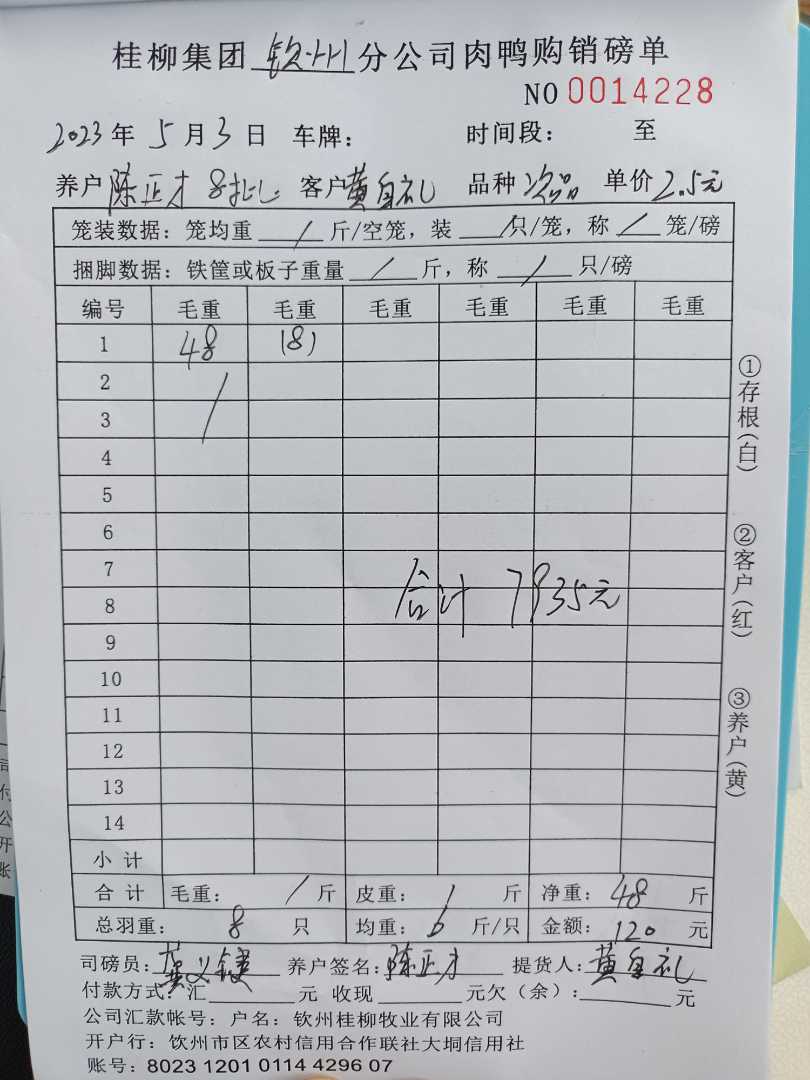 桂柳集团 钦州 分公司肉鸭购销磅单
NO 0014228
2023 年 5 月 3 日 车牌: 时间段: 至
养户 陈正才 8批 客户 黄自礼 品种 次品 单价 2.5元
笼装数据: 笼均重 / 斤/空笼, 装 / 只/笼, 称 / 笼/磅
捆脚数据: 铁筐或板子重量 / 斤, 称 / 只/磅
编号 毛重 毛重 毛重 毛重 毛重 毛重
1 48 (8)
2 /
3
4
5
6
7
8 合计 7935元
9
10
11
12
13
14
小 计
合 计 毛重: / 斤 皮重: / 斤 净重: 48 斤
总羽重: 8 只 均重: 6 斤/只 金额: 120 元
司磅员: 义键 养户签名: 陈正才 提货人: 黄自礼
付款方式: 汇 元 收现 元欠(余): 元
公司汇款帐号: 户名: 钦州桂柳牧业有限公司
开户行: 钦州市区农村信用合作联社大垌信用社
账号: 8023 1201 0114 4296 07
①存根(白)
②客户(红)
③养户(黄)